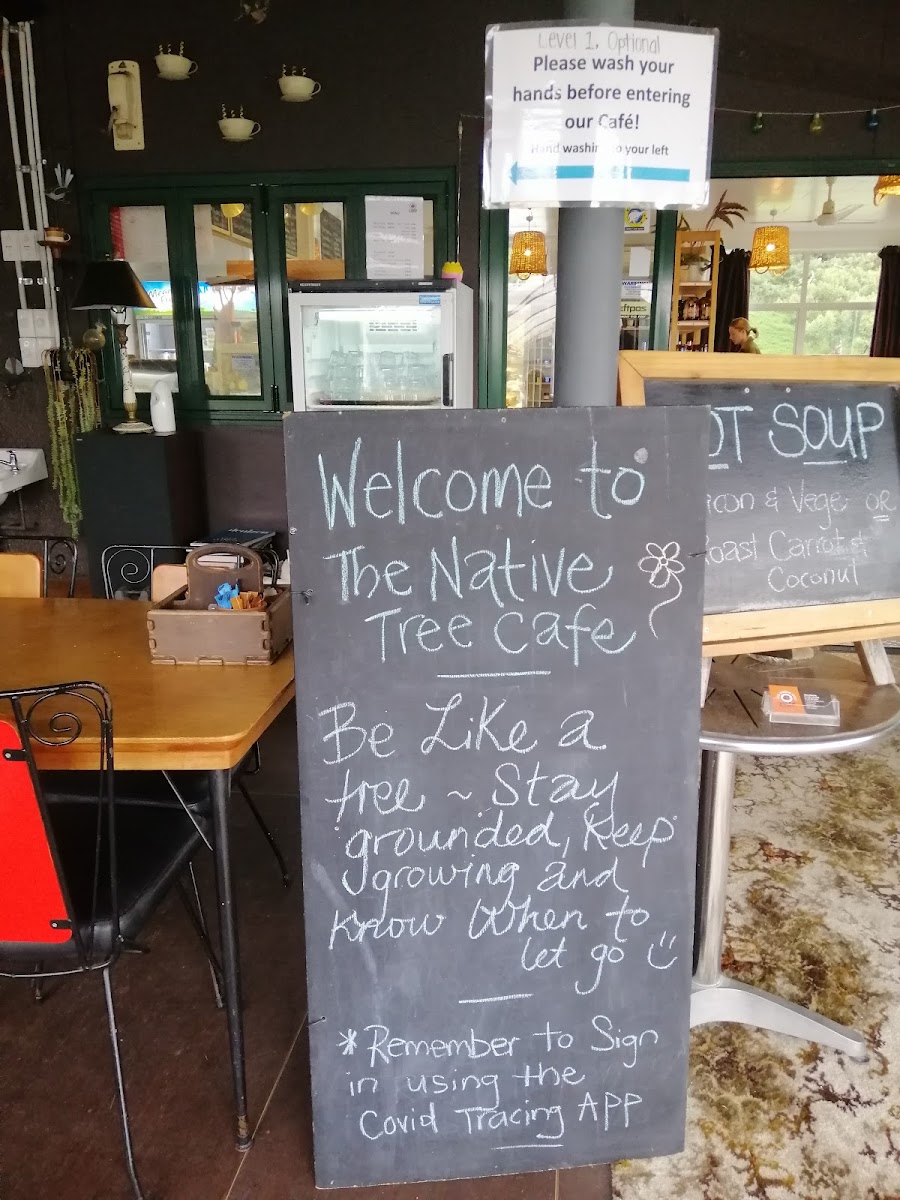 Level 1, Optional
Please wash your
hands before entering
our Café!
Hand washing to your left
Welcome to
The Native
Tree Cafe
Be Like a
tree ~ Stay
grounded, Keep
growing and
Know When to
let go
*Remember to Sign
in using the
Covid Tracing APP
OT SOUP
acon & Vege or
Roast Carrot &
Coconut
ftpos